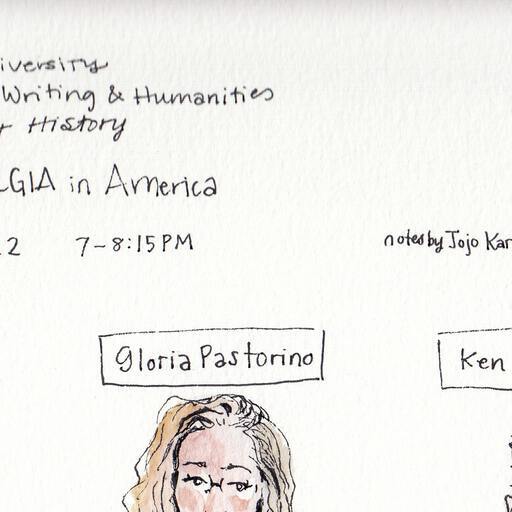 iversity
Writing & Humanities
History
LGIA in America
2 7-8:15 PM
notes by Jojo Kar
Gloria Pastorino
Ken